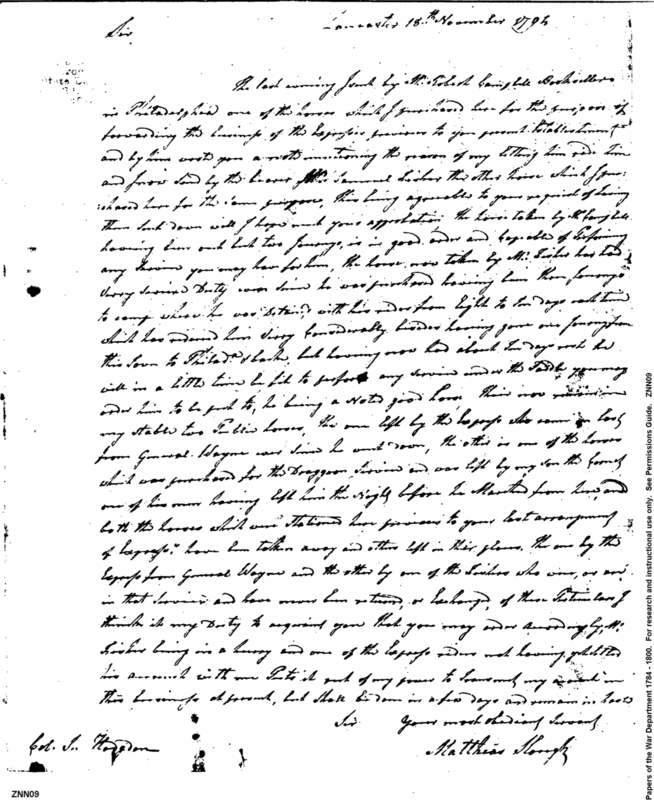 Lancaster 18.th November 1794
Sir
The last evening I sent by Mr. Robert Campbell Bookseller
in Philadelphia one of the horses which I purchased here for the purpose of
forwarding the business of the Expresses previous to your present Establishment
and by him wrote you a note mentioning the reason of my letting him ride him
and now send by the bearer Mr. Samuel the other horse which I pur
chased here for the same purpose, this being agreeable to your request of having
them sent down will I hope meet your approbation the horse taken by Mr Campbell
having been out but two Journeys, is in good order and Capable of performing
any Service you may have for him, the horse now taken by Mr. has had
very Severe Duty ever since he was purchased having been three Journeys
to camp where he was Detaind with his rider from Eight to Ten days each time
which has reduced him very Considerably besides having gone one Journey from
this Town to Philada. & back, but having now had about Ten days rest he
will in a little time be fit to perform any Service under the Saddle you may
order him to be put to, he being a Noted good horse Their now remain in
my Stable two Public horses, the one left by the Express who came in last
from General Wayne ever since he went down, the other is one of the horses
which was purchased for the Draggoon Service and was left by my Son the Cornet
one of his men having left him the Night before he Marched from here, and
both the horses which were Stationed here previous to your last arrangement
of Expresses have been taken away and others left in their places, the one by the
Express from General Wayne and the other by one of the who were, or are
in that Service and have never been returnd, or Exchanged, of these Particulars I
think it my Duty to acquaint you that you may order accordingly, Mr.
being in a hurry and one of the Express riders not having settled
his account with me Puts it out of my power to Transmit my account in
this business at present, but shall be done in a few days and remain in haste
Sir Your most obedient Servant
Matthias Slough
Col. S. Hogdon
ZNN09
Papers of the War Department 1784 - 1800. For research and instructional use only. See Permissions Guide. ZNN09